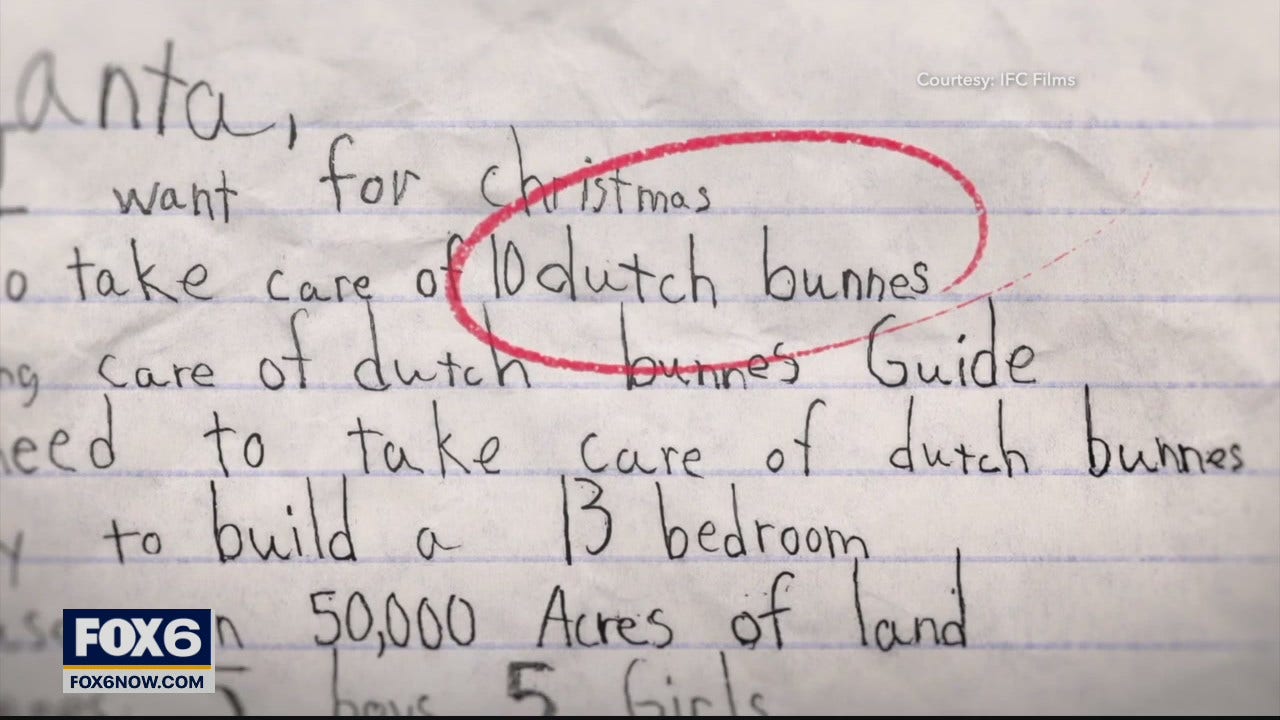 Courtesy: IFC Films
anta,
I want for christmas
o take care of 10 dutch bunnes
ng care of dutch bunnes Guide
need to take care of dutch bunnes
y to build a 13 bedroom
n 50,000 Acres of land
5 boys 5 Girls
FOX6
FOX6NOW.COM